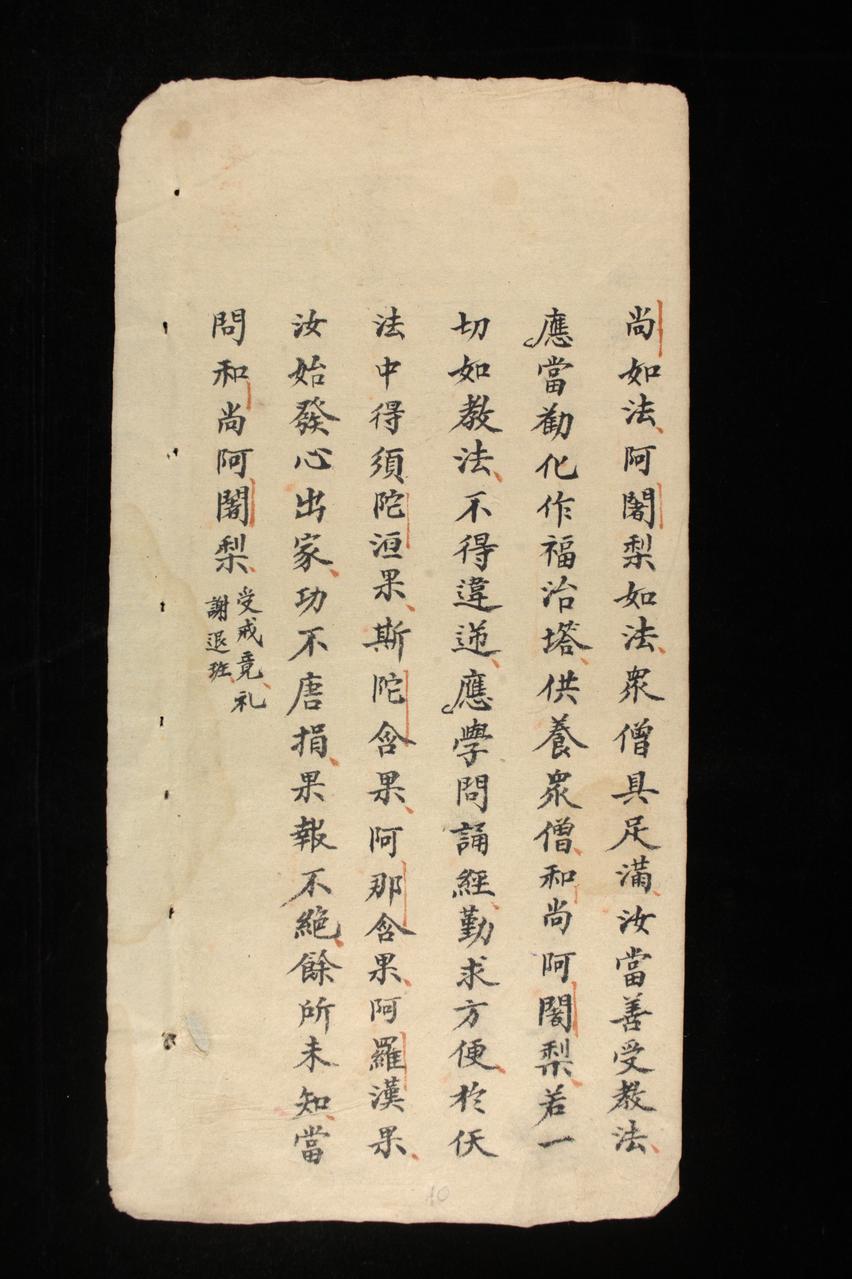 尚如法阿闍梨如法眾僧具足滿汝當善受教法
應當勸化作福治塔供養眾僧和尚阿闍梨若一
切如教法不得違逆應學問誦經勤求方便於仸
法中得須陀洹果斯陀含果阿那含果阿羅漢果
汝始發心出家功不唐捐果報不絕餘所未知當
問和尚阿闍梨
受戒竟礼
謝退班
10